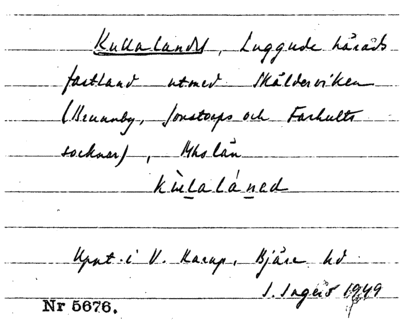 Kullalandet, Luggude härads
fastland utmed Skälderviken
(Brunnby, Jonstorps och Farhults
socknar), Mhs län
Kùlaláned
Uppt. i V. Karup, Bjäre hd
I. Ingers 1949
Nr 5676.